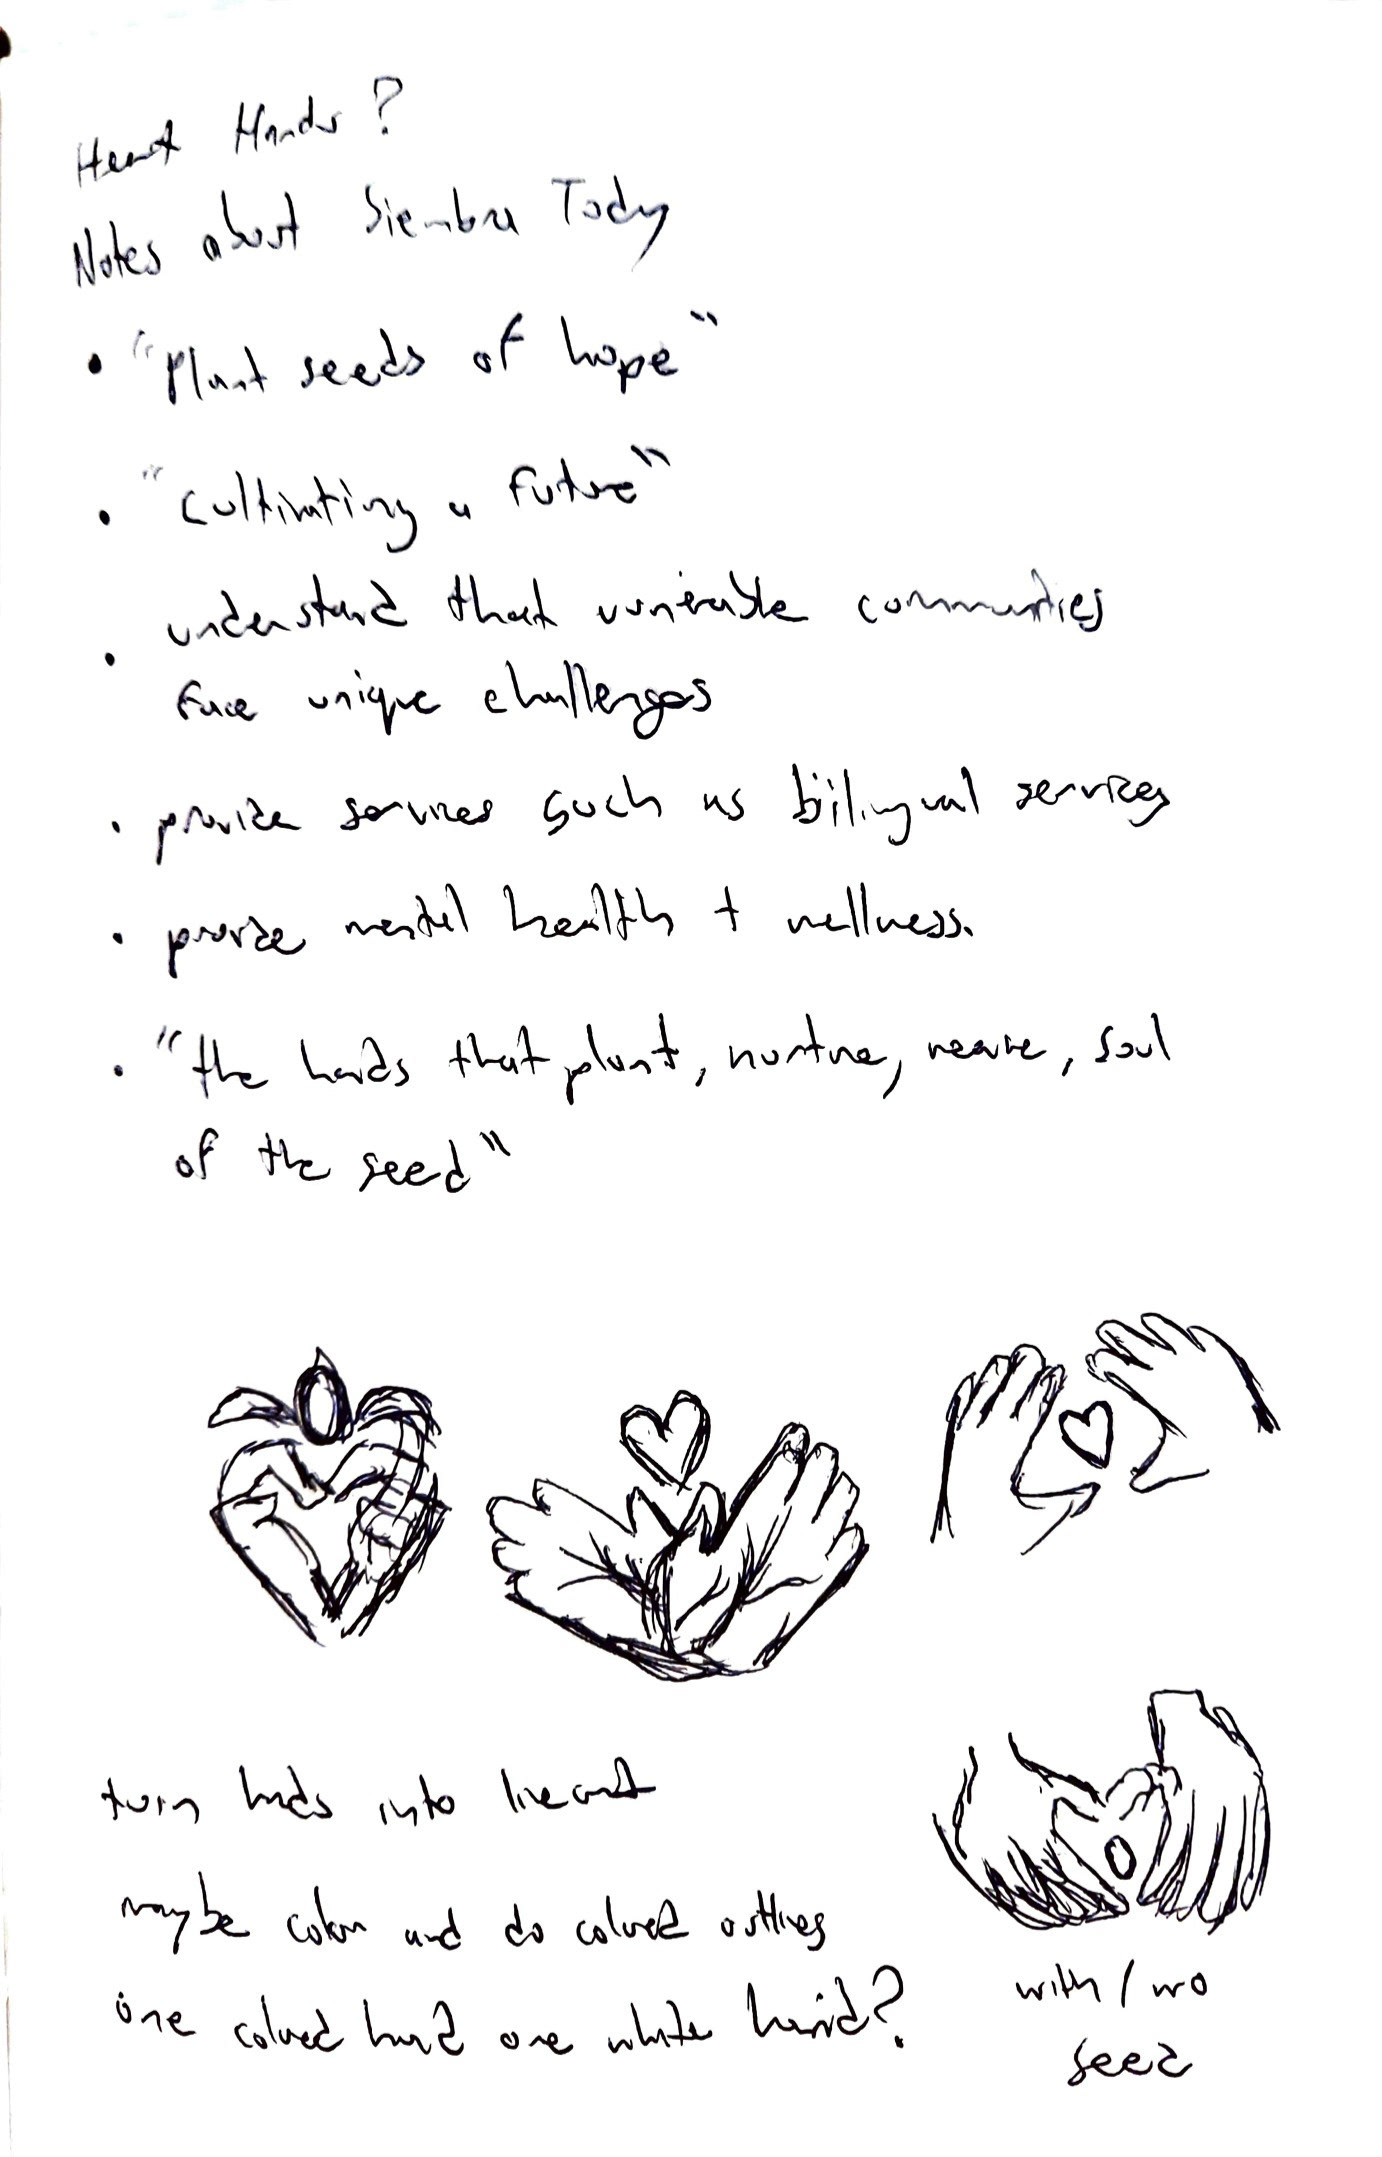 Heart Hands?
Notes about Siembra Today
• "Plant seeds of hope"
• "cultivating a future"
• understand that vunerable communities
face unique challenges
• provide services such as bilingual services
• provide mental health + wellness.
• "the hands that plant, nurture, weave, soul
of the seed"
turn hands into lineart
maybe color and do colored outlines
one colored hand one white hand?
with / wo
seed